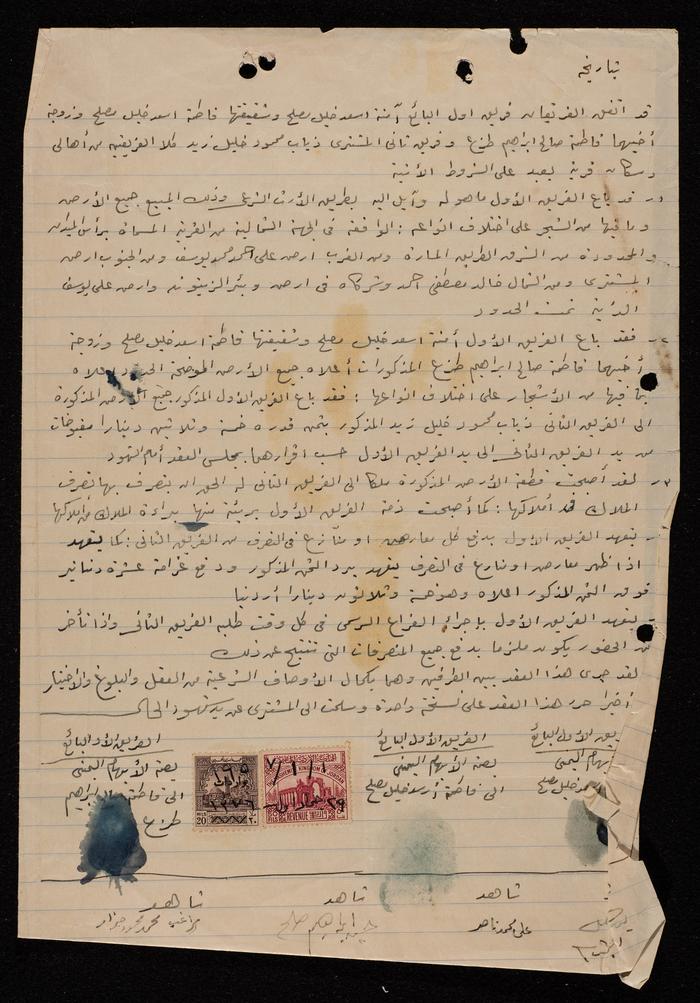 بتاريخه
قد اتفق الفريقان فريق اول البائع آمنة اسعد خليل مصلح وشقيقتها فاطمة اسعد خليل مصلح وزوجة
أخيهما فاطمة صالح ابراهيم طزيع وفريق ثاني المشتري ذياب محمود خليل زيد كلا الفريقين من أهالي
وسكان قرية يعبد على الشروط الآتية
قد باع الفريق الأول ما هو له وآيل اليه بطريق الأرث الشرعي وذلك المبيع جميع الأرض
وما فيها من الشجر على اختلاف انواعه : الواقعة في الجهة الشمالية من القرية المسماة براس
والمحدودة من الشرق الطريق المارة ومن الغرب ارض علي احمد محمد يوسف ومن الجنوب ارض
المشتري ومن الشمال خالد مصطفى احمد وشركاه في ارض وبئر الزيتونه وارض علي يوسف
تمت الحدود
فقد باع الفريق الأول آمنة اسعد خليل مصلح وشقيقتها فاطمة اسعد خليل مصلح وزوجة
أخيهما فاطمة صالح ابراهيم طزيع المذكورات أعلاه جميع الأرض الموضحة الحدود اعلاه
بما فيها من الأشجار على اختلاف انواعها : فقد باع الفريق الأول المذكور جميع الأرض المذكورة
الى الفريق الثاني ذياب محمود خليل زيد المذكور بثمن قدره خمسة وثلاثين دينارا مقبوضات
من يد الفريق الثاني الى يد الفريق الأول حسب اقرارهما بمجلس العقد أمام الشهود
لقد أصبحت قطعة الأرض المذكورة ملكا الى الفريق الثاني له الحق ان يتصرف بها تصرف
الملاك في أملاكها : كما أصبحت ذمة الفريق الأول بريئة منها براءة الملاك من أملاكها
يتعهد الفريق الأول بدفع كل معارض او منازع في التصرف من الفريق الثاني : كما يتعهد
اذا ظهر معارض او نازع في التصرف يتعهد برد الثمن المذكور ودفع غرامة عشرة دنانير
فوق الثمن المذكور اعلاه وهو خمسة وثلاثون دينارا أردنيا
يتعهد الفريق الأول بإجراء الفراغ الرسمي في كل وقت طلبه الفريق الثاني واذا تأخر
عن الحضور يكون ملزما بدفع جميع المصروفات التي تنتج عن ذلك
لقد جرى هذا العقد بين الطرفين وهما بكمال الأوصاف الشرعية من العقل والبلوغ والاختيار
أخيرا حرر هذا العقد على نسخة واحدة وسلمت الى المشتري عن يد شهود الحال
الفريق الأول البائع
بصمة الأبهام اليمنى
الى فاطمة ابراهيم
طزيع
الفريق الأول البائع
بصمة الأبهام اليمنى
الى فاطمة اسعد خليل مصلح
الأول البائع
اليمنى
خليل مصلح
MILS 20
KINGDOM OF JORDAN
REVENUE
FILS
شاهد
علي محمد ناصر
شاهد
ابراهيم صالح
شاهد
محمد محمود